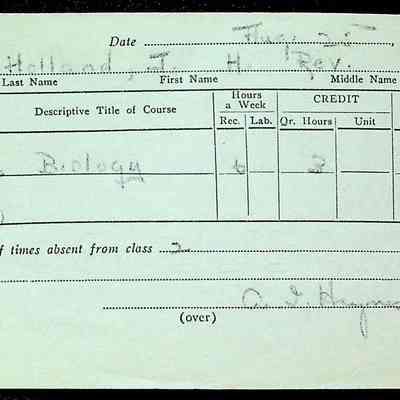 Date Aug. 25,
Holland, J. H. Rev.
Last Name First Name Middle Name
Descriptive Title of Course Hours a Week CREDIT
Rec. Lab. Qr. Hours Unit
Biology 6 3
f times absent from class 2
A. I.
(over)